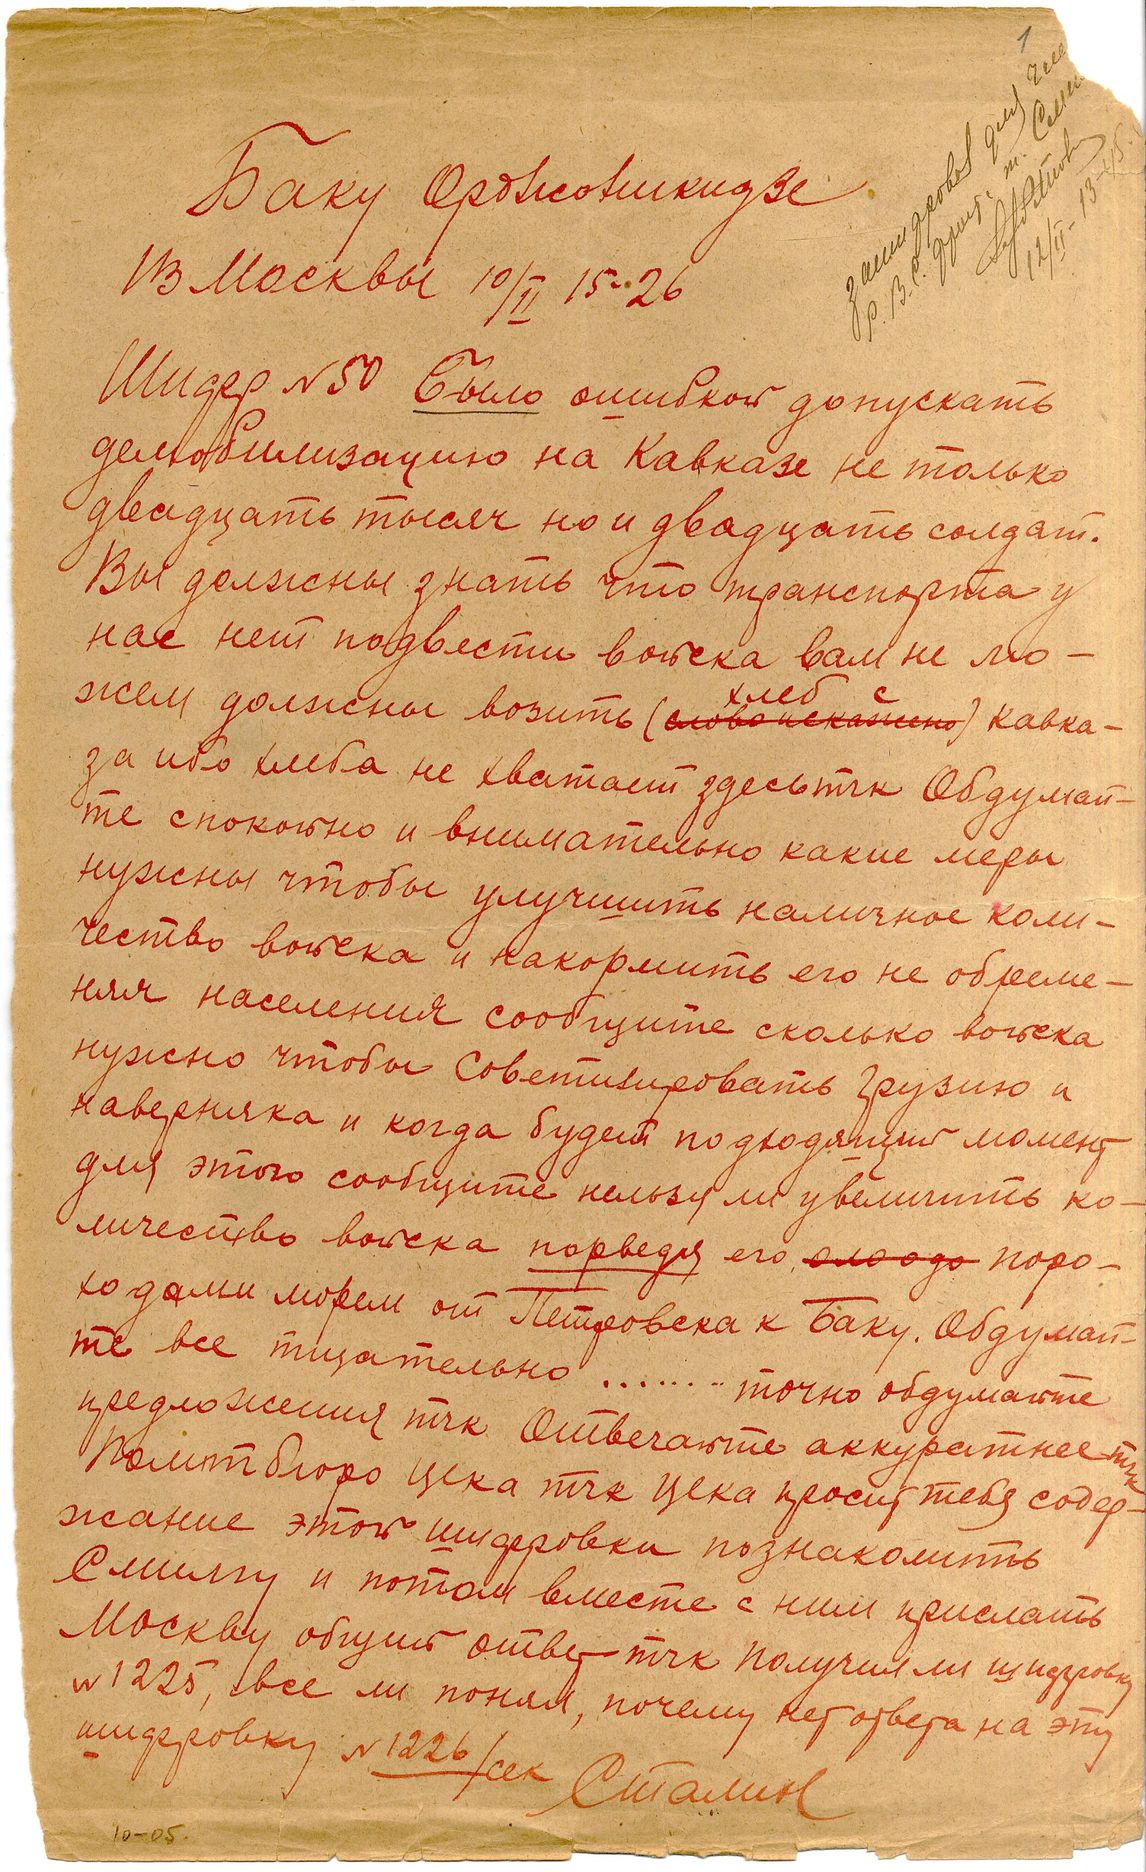 1
Р.В.С.
12/II-
Баку Орджоникидзе
Из Москвы 10/II 15-26
Шифр N 50 Было ошибкой допускать
демобилизацию на Кавказе не только
двадцать тысяч но и двадцать солдат.
Вы должны знать что транспорта у
нас нет подвести войска вам не мо-
жем должны возить (слово искажено) хлеб с Кавка-
за ибо хлеба не хватает здесь тчк Обдумай-
те спокойно и внимательно какие меры
нужны чтобы улучшить наличное коли-
чество войска и накормить его не обреме-
няя населения сообщите сколько войска
нужно чтобы Советизировать Грузию и
наверняка и когда будет подходящий момент
для этого сообщите нельзя ли увеличить ко-
личество войска порведя его паро-
ходами морем от Петровска к Баку. Обдумай-
те все тщательно ....... точно обдумайте
предложения тчк Отвечайте аккуратнее тчк
Политбюро Цека тчк Цека просит тебя содер-
жание этой шифровки познакомить
Смилгу и потом вместе с ним прислать
Москву общий ответ тчк Получил ли шифровку
N 1225, все ли понял, почему нет ответа на эту
шифровку N 1226/сек Сталин
10-05.